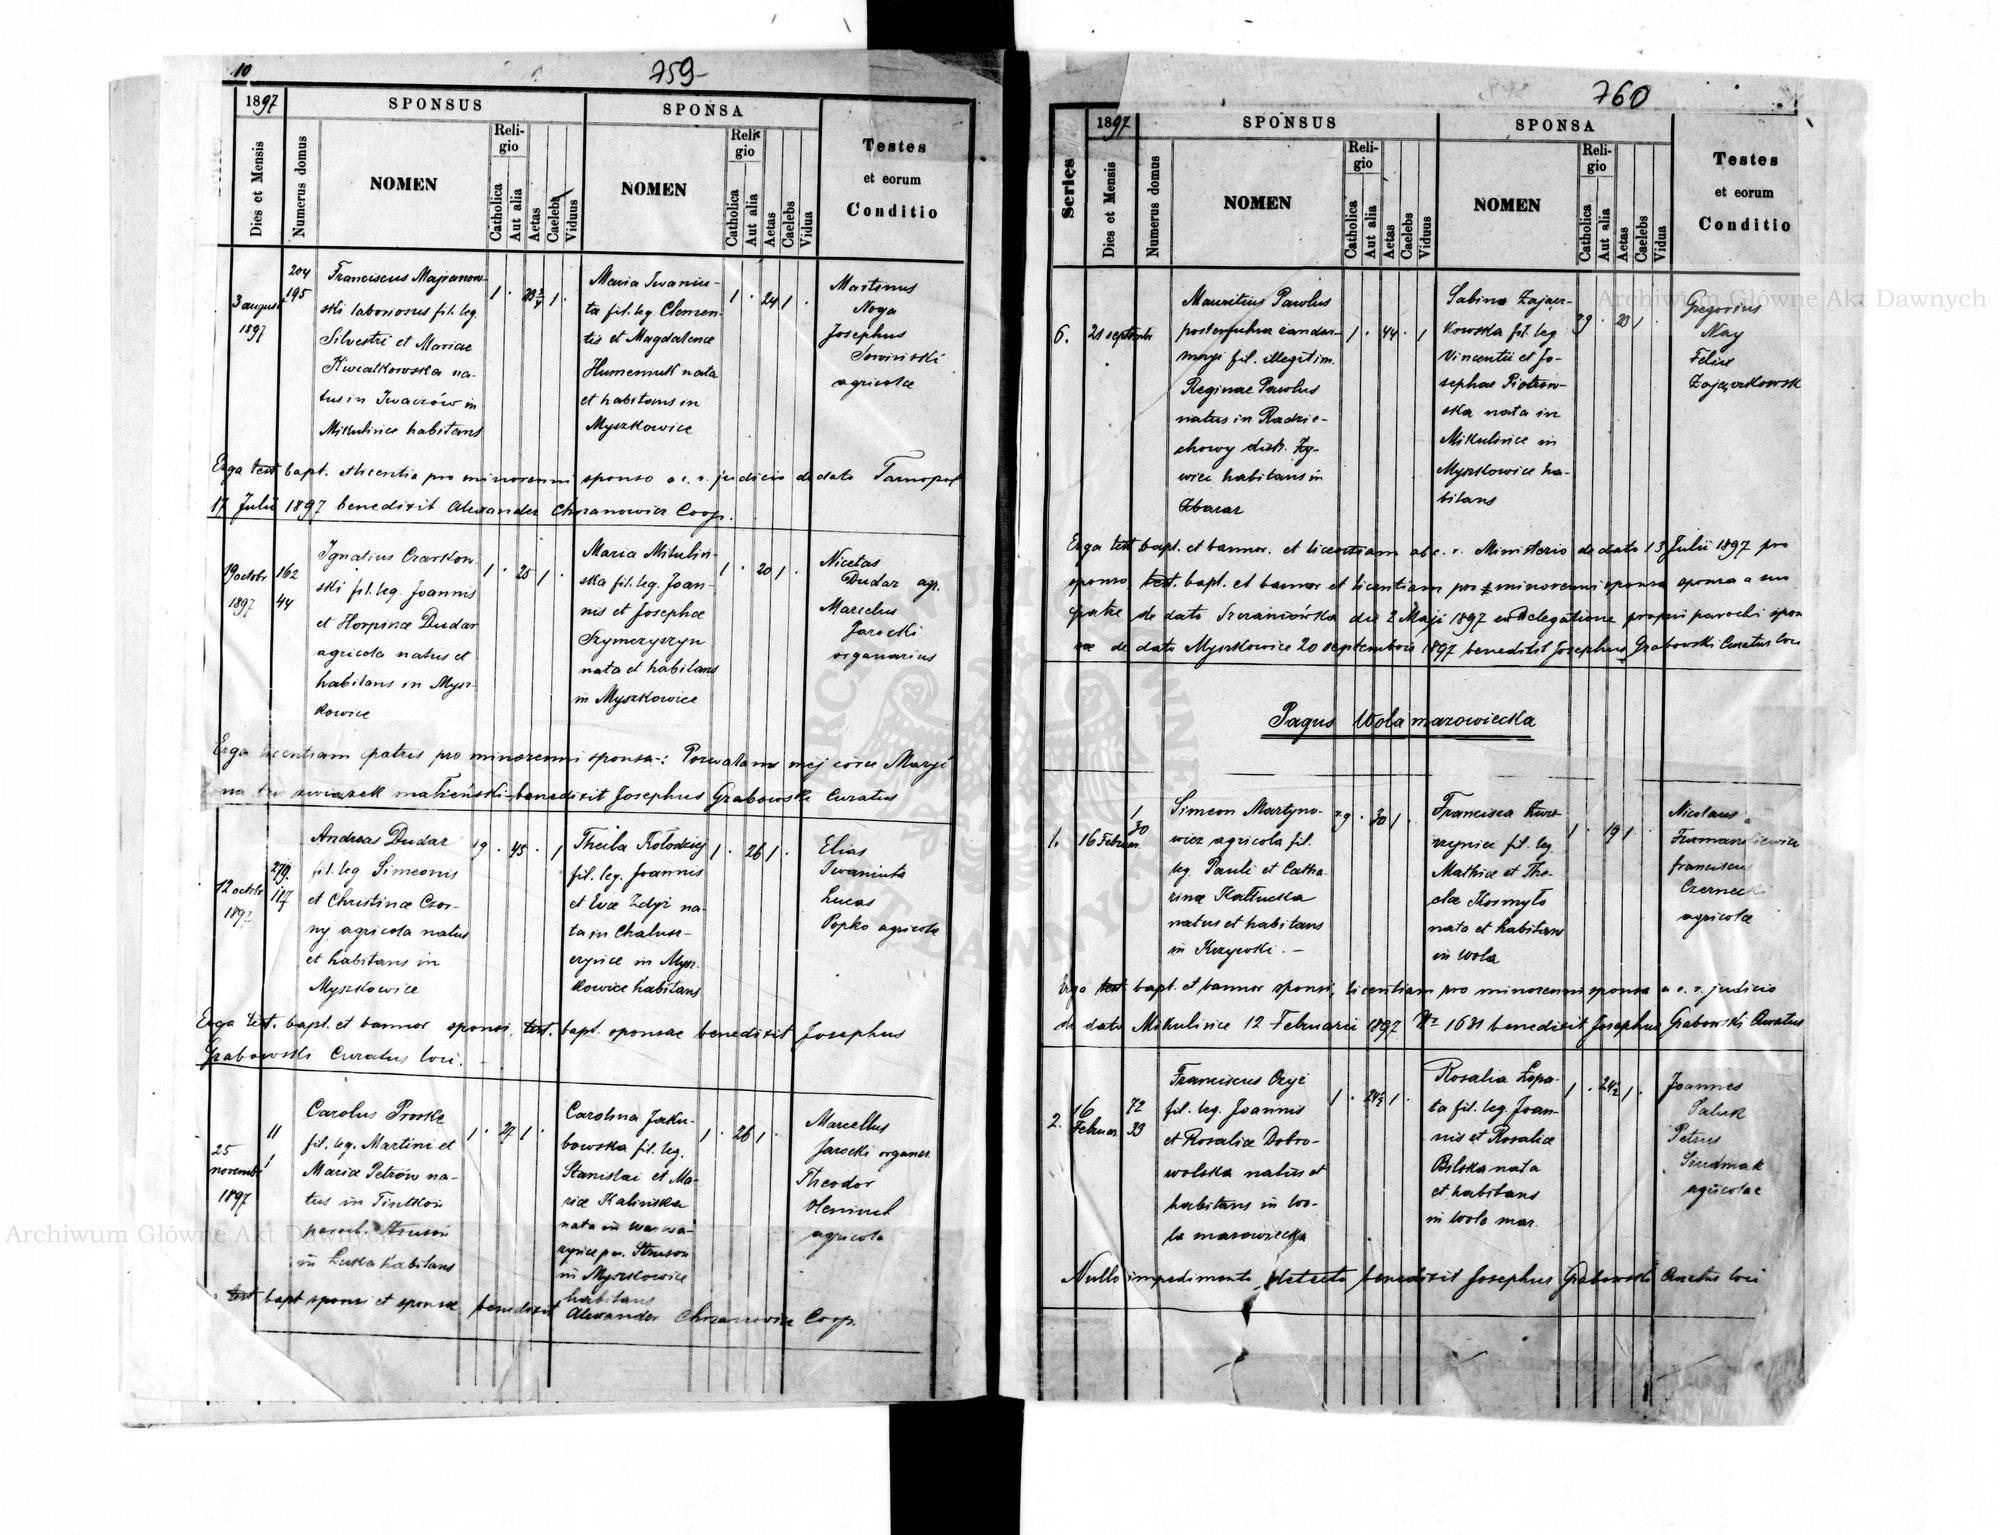 10
759
1897
SPONSUS
SPONSA
Dies et Mensis
Numerus domus
NOMEN
Reli-
gio
Catholica
Aut alia
Aetas
Caelebs
Viduus
NOMEN
Reli-
gio
Catholica
Aut alia
Aetas
Caelebs
Vidua
Testes
et eorum
Conditio
3 augusti
1897
204
195
Franciscus Majranow-
ski laboriosus fil. leg
Silvestri et Mariae
Kwiatkowska na-
tus in Iwaczów in
Mikulince habitans
1 . 23 3/4 1 .
Maria Iwaniu-
ta fil. leg. Clemen-
tis et Magdalenae
Humeniuk nata
et habitans in
Myszkowice
1 . 24 1 .
Martinus
Noga
Josephus
Sowiński
agricolae
Erga test bapt. et licentia pro minorenni sponso a c. r. judicio de dato Tarnopol
17 Julii 1897 benedixit Alexander Chrzanowicz Coop.
19 octobr
1897
162
44
Ignatius Czarkow-
ski fil. leg. Joannis
et Horpinae Dudar
agricola natus et
habitans in Mysz-
kowice
1 . 25 1 .
Maria Mikuliń-
ska fil. leg. Joan-
nis et Josephae
Szymczyszyn
nata et habitans
in Myszkowice
1 . 20 1 .
Nicetas
Dudar agr.
Marcelus
Jarocki
organarius
Erga licentiam patris pro minorenni sponsa: Pozwalam mej córce Maryi
na ten związek małżeński benedixit Josephus Grabowski Curatus
12 octobr
1897
279.
117
Andreas Dudar
fil. leg Simeonis
et Christinae Czor-
ny agricola natus
et habitans in
Myszkowice
19 . 45 . 1
Thecla Kołodziej
fil. leg. Joannis
et Evae Zdyż na-
ta in Chałusz-
czyńce in Mysz-
kowice habitans
1 . 26 1 .
Elias
Iwaniuta
Lucas
Popko agricolae
Erga test. bapt. et bannor sponsi, test. bapt. sponsae benedixit Josephus
Grabowski Curatus loci.
25
novembr
1897
11
1
Carolus Proske
fil. leg. Martini et
Mariae Petrów na-
tus in
paroch. Strusów
in Łuka habitans
1 . 27 1 .
Carolina Jaku-
bowska fil. leg.
Stanislai et Ma-
riae Kalinska
nata in Warwa-
ryńce par. Strusów
in Myszkowice
habitans
1 . 26 1 .
Marcellus
Jarocki organar.
Theodor
agricola
test bapt sponsi et sponsae benedixit Alexander Chrzanowicz Coop.
760
Series
1897
SPONSUS
SPONSA
Dies et Mensis
Numerus domus
NOMEN
Reli-
gio
Catholica
Aut alia
Aetas
Caelebs
Viduus
NOMEN
Reli-
gio
Catholica
Aut alia
Aetas
Caelebs
Vidua
Testes
et eorum
Conditio
6.
21 septembr
Mauritius Pawlus
postenfuhrer żandar-
meryi fil. illegitim.
Reginae Pawlus
natus in Radzie-
chowy distr. Ży-
wiec habitans in
Zbaraż
1 . 44 . 1
Sabina Zającz-
kowska fil. leg
Vincentii et Jo-
sephae Piotrow-
ska nata in
Mikulince in
Myszkowice ha-
bitans
rg . 20 1 .
Gregorius
Nay
Felix
Zajączkowski
Erga test bapt. et bannor. et licentiam ab c. r. Ministerio de dato 13 Julii 1897 pro
sponso, test. bapt. et bannor et licentiam pro minorenni sponsa sponsa a suo
patre de dato die 2 Maji 1897 ex Delegatione proprii parochi spon
sae de dato Myszkowice 20 septembris 1897 benedixit Josephus Grabowski Curatus loci
Pagus Wola mazowiecka
1.
16 Februar.
1
30
Simeon Martyno-
wicz agricola fil.
leg. Pauli et Catha-
rinae Kałucka
natus et habitans
in Krzywki. –
rg . 30 1 .
Francisca
fil. leg.
Mathiae et The-
clae Kosmyło
nata et habitans
in Wola
1 . 19 1 .
Nicolaus
Franciscus
agricolae
Erga test. bapt. et bannor sponsi, licentiam pro minorenni sponsa a c. r. judicio
de dato Mikulince 12 Februarii 1897 Nr 1681 benedixit Josephus Grabowski Curatus
2.
16
Februar
72
33
Franciscus Czyż
fil. leg. Joannis
et Rosaliae Dobro-
wolska natus et
habitans in Wo-
la mazowiecka
1 . 24 1/2 1 .
Rosalia Łopa-
ta fil. leg. Joan-
nis et Rosaliae
Bilska nata
et habitans
in Wola maz.
1 . 24 1/2 1 .
Joannes
Saluk
Petrus
Sendmak
agricolae
Nullo impedimento detecto benedixit Josephus Grabowski Curatus loci
Archiwum Główne Akt Dawnych
Archiwum Główne Akt Dawnych